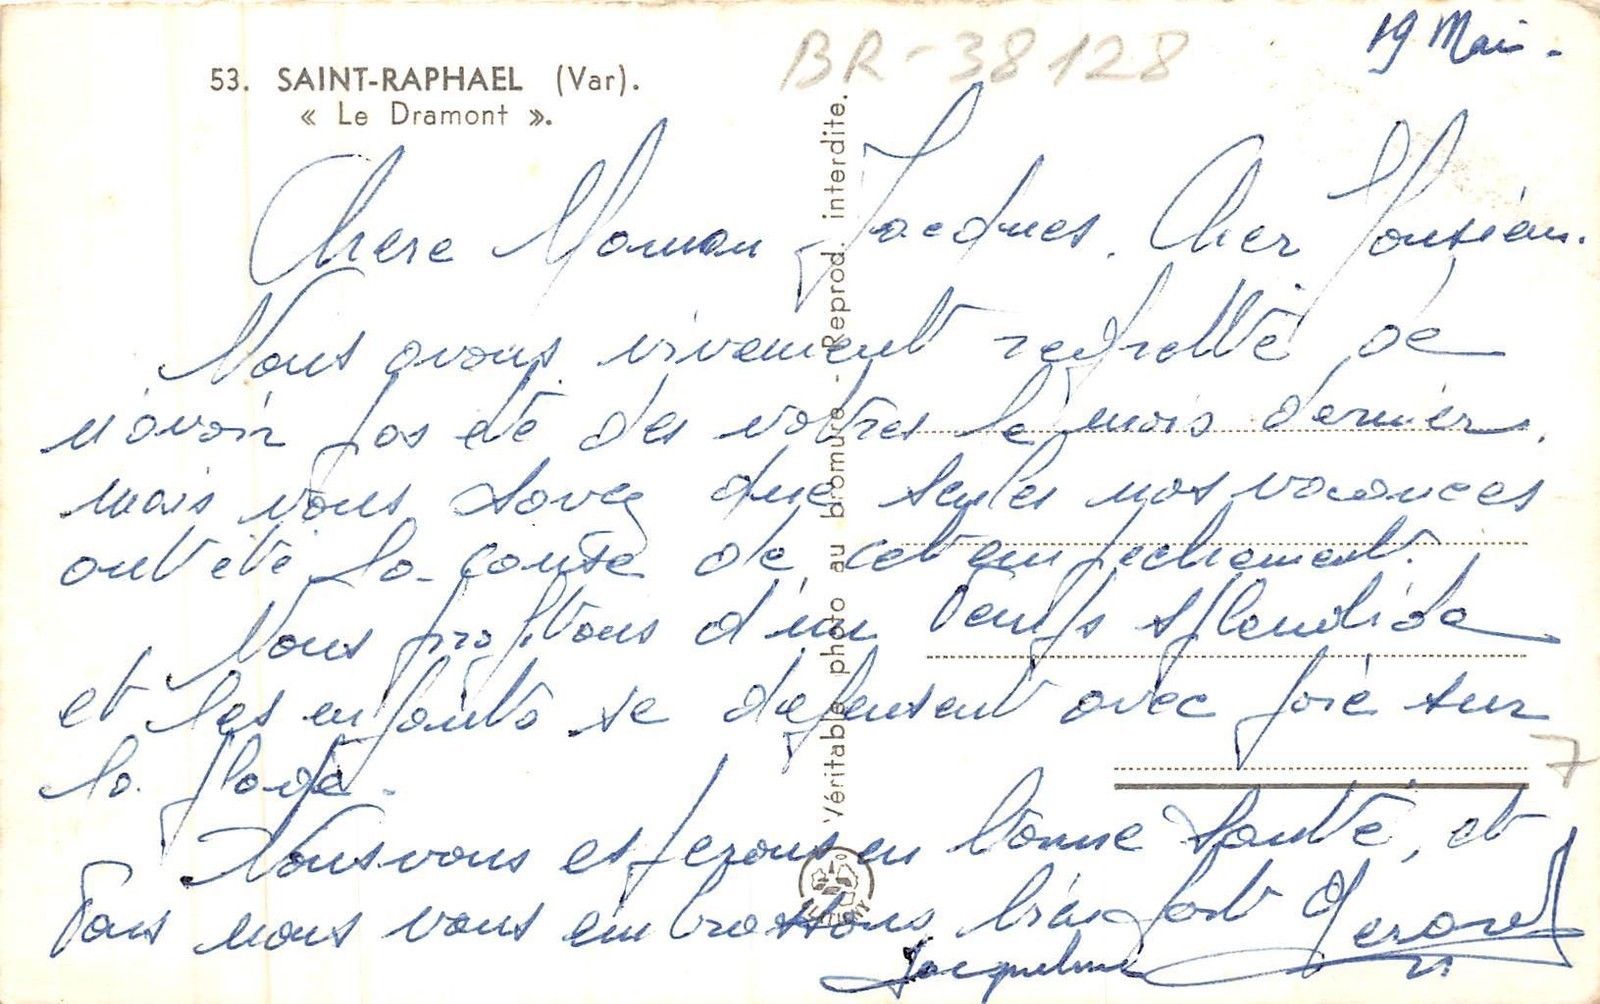 BR-38128
19 Mai.
53. SAINT-RAPHAEL (Var).
« Le Dramont ».
Chere Maman Jacques. Cher Monsieur.
Nous avons vivement regretté de
n'avoir pas été des votres le mois dernier,
mais vous savez que seules nos vacances
ont été la cause de cet empechement.
Nous profitons d'un temps splendide
et les enfants se dépensent avec joie sur
la plage.
Nous vous esperons en bonne santé, et
Tous nous vous embrassons bien fort Gerard
Jacqueline
Véritable photo au bromure - Reprod. interdite.
7